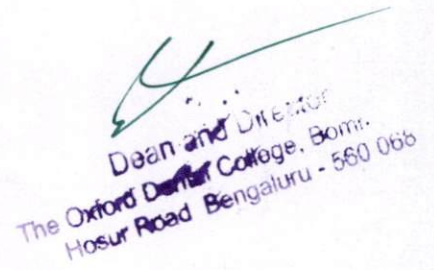 Dean and Director
The Oxford Dental College, Bomr.
Hosur Road Bengaluru - 560 068